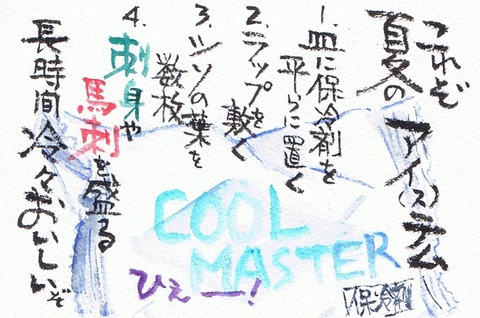 これぞ
夏のアイ(ス)テム
1. 皿に保冷剤を
平らに置く
2. ラップを敷く
3. シソの葉を
数枚
4. 刺身や
馬刺を盛る
長時間冷々おいしいぞ
COOL
MASTER
ひえー!
保冷剤